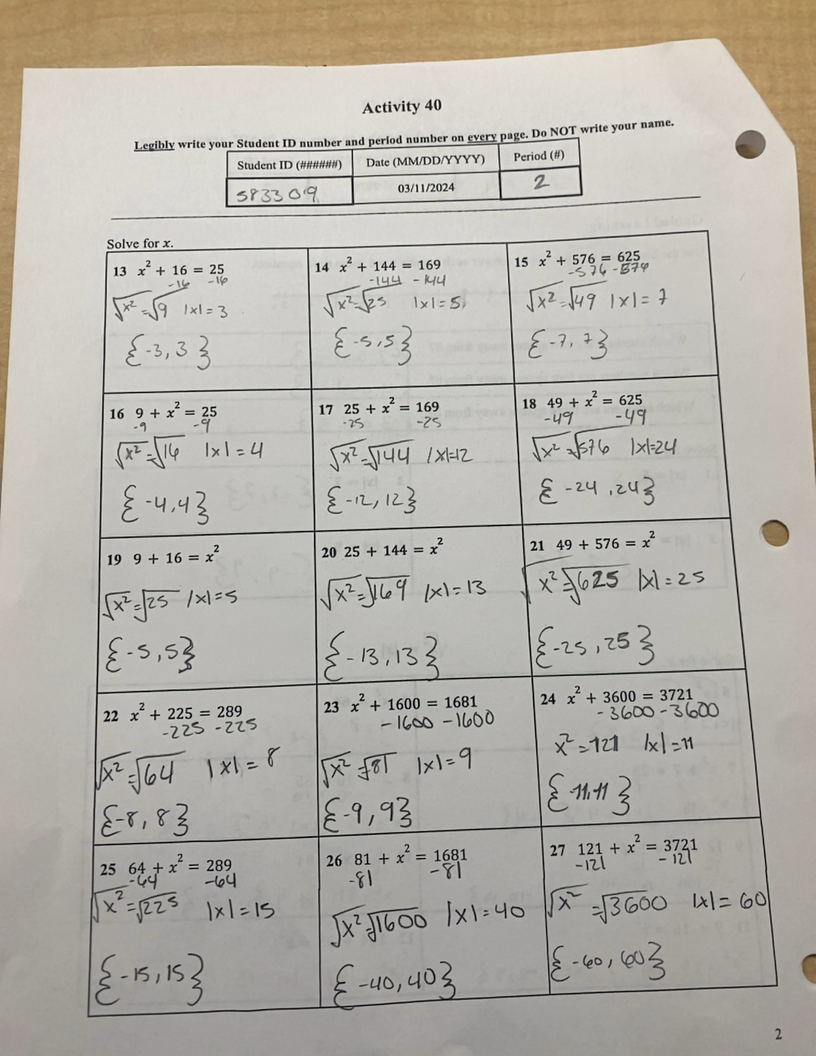 Activity 40
Legibly write your Student ID number and period number on every page. Do NOT write your name.
Student ID (######) Date (MM/DD/YYYY) Period (#)
583309 03/11/2024 2
Solve for x.
13 x² + 16 = 25
-16 -16
√x² = √9 |x| = 3
{-3, 3}
14 x² + 144 = 169
-144 -144
√x² = √25 |x| = 5
{-5, 5}
15 x² + 576 = 625
-576 -576
√x² = √49 |x| = 7
{-7, 7}
16 9 + x² = 25
-9 -9
√x² = √16 |x| = 4
{-4, 4}
17 25 + x² = 169
-25 -25
√x² = √144 |x| = 12
{-12, 12}
18 49 + x² = 625
-49 -49
√x² = √576 |x| = 24
{-24, 24}
19 9 + 16 = x²
√x² = √25 |x| = 5
{-5, 5}
20 25 + 144 = x²
√x² = √169 |x| = 13
{-13, 13}
21 49 + 576 = x²
√x² = √625 |x| = 25
{-25, 25}
22 x² + 225 = 289
-225 -225
√x² = √64 |x| = 8
{-8, 8}
23 x² + 1600 = 1681
-1600 -1600
√x² = √81 |x| = 9
{-9, 9}
24 x² + 3600 = 3721
-3600 -3600
x² = 121 |x| = 11
{-11, 11}
25 64 + x² = 289
-64 -64
√x² = √225 |x| = 15
{-15, 15}
26 81 + x² = 1681
-81 -81
√x² = √1600 |x| = 40
{-40, 40}
27 121 + x² = 3721
-121 -121
√x² = √3600 |x| = 60
{-60, 60}
2